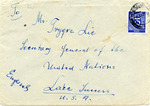 To
Mr. Trygve Lie
Secretary General of the
United Nations
Lake Success
U.S.A.